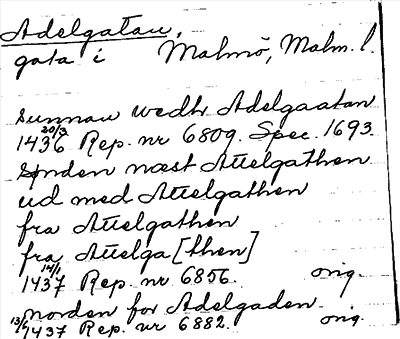 Adelgatan,
gata i Malmö, Malm. l.
sunnan wedhr Adelgaatan
20/3 1436 Rep. nr 6809. Spec. 1693.
synden næst Attelgathen
ud med Attelgathen
fra Attelgathen
fra Attelga[then]
14/1 1437 Rep. nr 6856. orig.
norden for Adelgaden.
1437 Rep. nr 6882. orig.